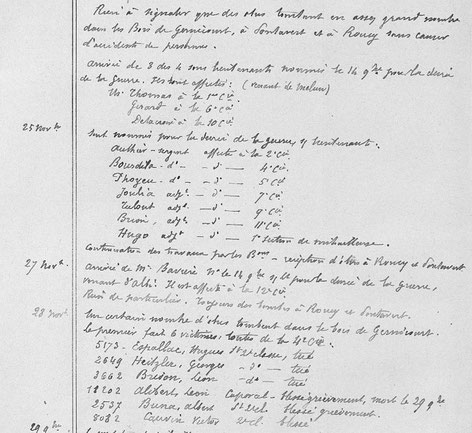 Rien à signaler que des obus tombant en assez grand nombre
dans les Bois de Gernicourt, à Pontavert et à Roucy sans causer
d'accidents de personnes.
Arrivée de 3 des 4 sous lieutenants nommés le 14 9bre pour la durée
de la guerre. Ils sont affectés : (venant de Melun)
Mr Thomas à la 1ère Cie
Gérard à la 6e Cie
Delacroix à la 10 Cie
25 Novbre Sont nommés pour la durée de la guerre, s/ lieutenant.
Authier - sergent affecté à la 2e Cie
Bourdila - do - do - 4e Cie
- do - do - 5e Cie
Joulia adjt - do - 7e Cie
adjt - do - 9e Cie
adjt - do - 11e Cie
Hugo adjt - do - 1e Section de mitrailleuse.
Continuation des travaux par les Bons - réception d'obus à Roucy et Pontavert
27 Novb. Arrivée de Mr Bavière Né le 14 9bre s/ lt pour la durée de la guerre,
venant d'Albi. Il est affecté à la 12e Cie
Rien de particulier. Toujours des bombes à Roucy et Pontavert.
28 Novb Un certain nombre d'obus tombent dans le bois de Gernicourt.
le premier fait 6 victimes, toutes de la 4e Cie
5173 - Espallac, Hugues St 2e classe, tué
2649 Heitzler, Georges - do - tué
3662 Bredon, Léon - do - tué
18202 Alibert, Léon Caporal - blessé grièvement, mort le 29 9bre
2537 Buna, Albert St 2e cl. blessé grièvement.
5082 Cauvin Victor 2e cl. blessé
29 9bre